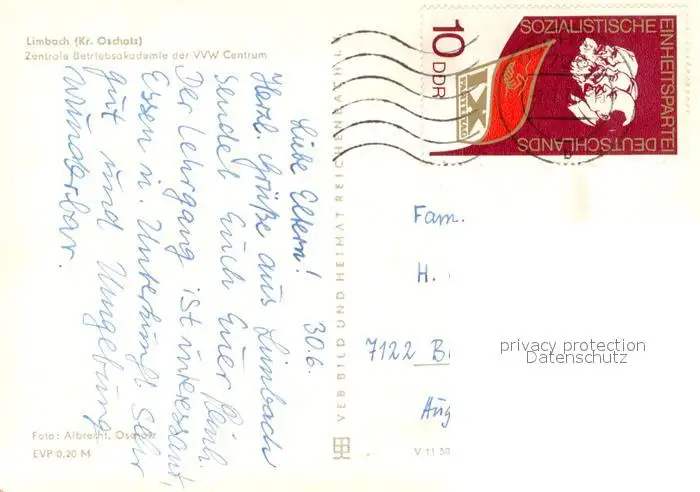 Limbach (Kr. Oschatz)
Zentrale Betriebsakademie der VVW Centrum
30.6.
Liebe Eltern!
Herzl. Grüße aus Limbach
sendet Euch Euer
Der Lehrgang ist interessant,
Essen u. Unterkunft sehr
gut und Umgebung
wunderbar.
Foto: Albrecht, Oschatz
EVP 0,20 M
VEB BILD UND HEIMAT REICHENBACH I. V.
V 11 50
10
DDR
SOZIALISTISCHE
EINHEITSPARTEI
DEUTSCHLANDS
IX.
PARTEITAG
Fam.
H.
7122 B
Aug
privacy protection
Datenschutz